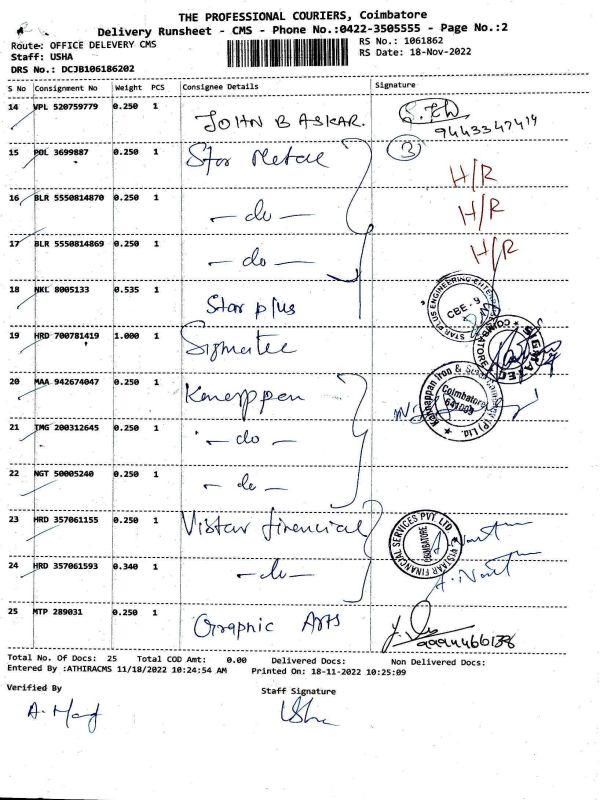 THE PROFESSIONAL COURIERS, Coimbatore
Delivery Runsheet - CMS - Phone No.:0422-3505555 - Page No.:2
Route: OFFICE DELEVERY CMS
RS No.: 1061862
Staff: USHA
RS Date: 18-Nov-2022
DRS No.: DCJB106186202
S No Consignment No Weight PCS Consignee Details Signature
14 VPL 520759779 0.250 1 JOHN BASKAR.
15 POL 3699887 0.250 1 Star Metal 3 H/R
16 BLR 5550814870 0.250 1 - do - H/R
17 BLR 5550814869 0.250 1 - do - H/R
18 NKL 8005133 0.535 1 Star plus
STAR PLUS ENGINEERING CBE - 9
19 HRD 700781419 1.000 1 Sigmatec
SIGMATEC COIMBATORE
20 MAA 942674047 0.250 1 Kanappan
Kannappan Iron & Steel Company (P) Ltd. Coimbatore
21 TMG 200312645 0.250 1 - do -
22 NGT 50005240 0.250 1 - do -
23 HRD 357061155 0.250 1 Vistar financial
VISTAAR FINANCIAL SERVICES PVT. LTD COIMBATORE
24 HRD 357061593 0.340 1 - do -
25 MTP 289031 0.250 1 Graphic Arts
Total No. Of Docs: 25 Total COD Amt: 0.00 Delivered Docs: Non Delivered Docs:
Entered By :ATHIRACMS 11/18/2022 10:24:54 AM Printed On: 18-11-2022 10:25:09
Verified By Staff Signature
Usha